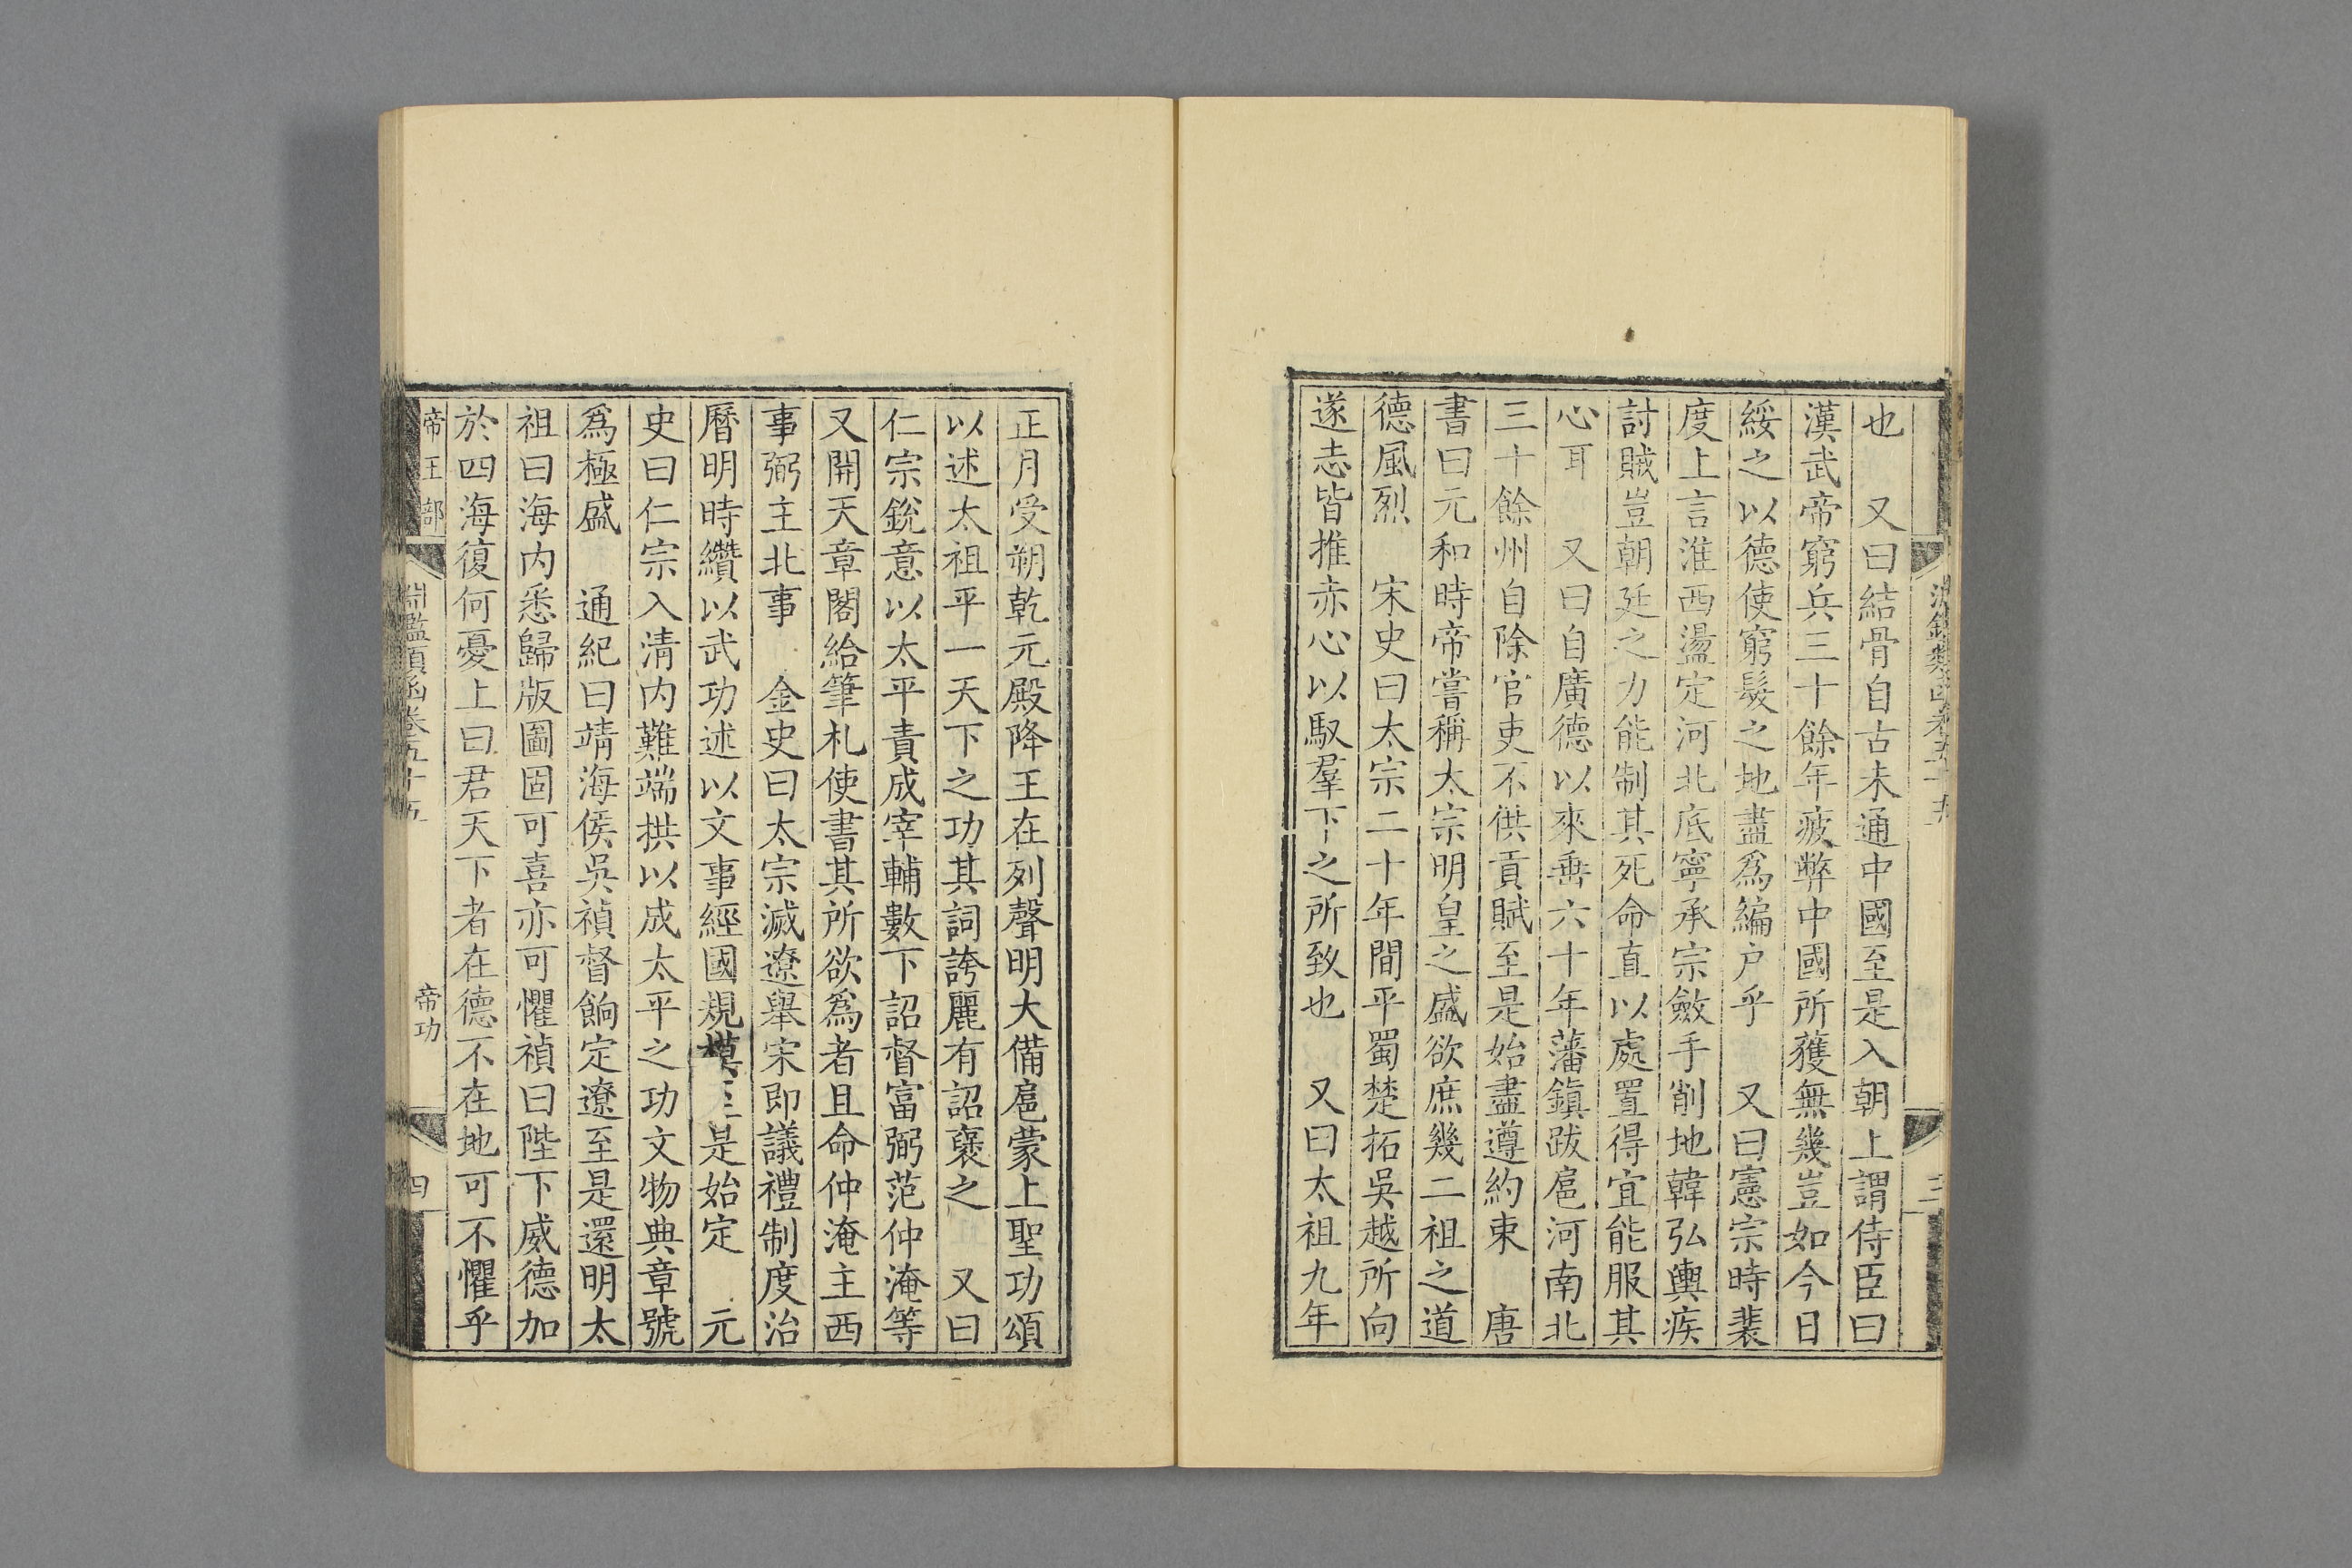 也　又曰結骨自古未通中國至是入朝上謂侍臣曰
漢武帝窮兵三十餘年疲弊中國所獲無幾豈如今日
綏之以德使窮髮之地盡爲編户乎　又曰憲宗時裴
度上言淮西盪定河北底寧承宗斂手削地韓弘輿疾
討賊豈朝廷之力能制其死命直以處置得宜能服其
心耳　又曰自廣德以來垂六十年藩鎮跋扈河南北
三十餘州自除官吏不供貢賦至是始盡遵約束　唐
書曰元和時帝嘗稱太宗明皇之盛欲庶幾二祖之道
德風烈　宋史曰太宗二十年間平蜀楚拓吳越所向
遂志皆推赤心以馭羣下之所致也　又曰太祖九年
正月受朔乾元殿降王在列聲明大備扈蒙上聖功頌
以述太祖平一天下之功其詞誇麗有詔褒之　又曰
仁宗銳意以太平責成宰輔數下詔督富弼范仲淹等
又開天章閣給筆札使書其所欲爲者且命仲淹主西
事弼主北事　金史曰太宗滅遼舉宋即議禮制度治
曆明時纘以武功述以文事經國規模至是始定　元
史曰仁宗入清內難端拱以成太平之功文物典章號
爲極盛　通紀曰靖海侯吳禎督餉定遼至是還明太
祖曰海內悉歸版圖固可喜亦可懼禎曰陛下威德加
於四海復何憂上曰君天下者在德不在地可不懼乎
帝王部
淵鑑類函卷五十五
帝功
四